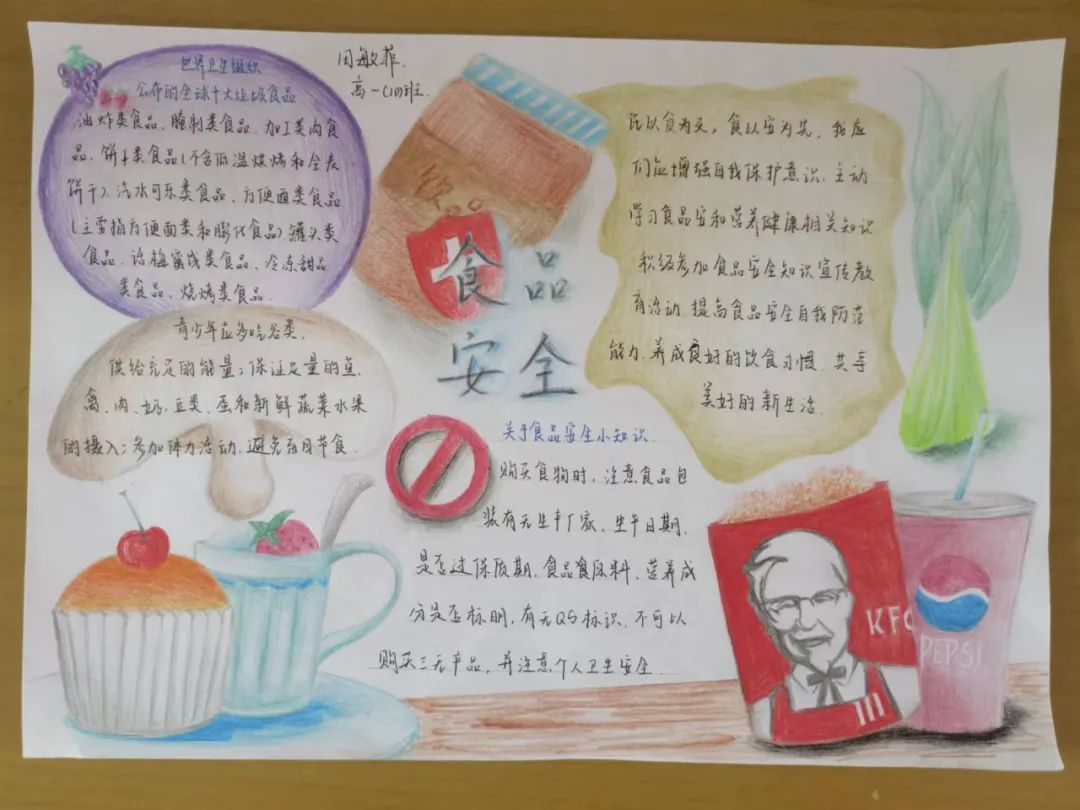 世界卫生组织
公布的全球十大垃圾食品
油炸类食品、腌制类食品、加工类肉食
品、饼干类食品(不含低温烘烤和全麦
饼干)、汽水可乐类食品、方便面类食品
(主要指方便面类和膨化食品)罐头类
食品、话梅蜜饯类食品、冷冻甜品
类食品、烧烤类食品
周敏菲
高一(10)班
食品
安全
民以食为天，食以安为先，我应
们应增强自我保护意识、主动
学习食品安和营养健康相关知识
积级参加食品安全知识宣传教
育活动 提高食品安全自我防范
能力、养成良好的饮食习惯、共享
美好的新生活
青少年应多吃谷类，
供给充足的能量；保证足量的鱼、
禽、肉、奶、豆类、蛋和新鲜蔬菜水果
的摄入；参加体力活动，避免盲目节食
关于食品安全小知识
购买食物时，注意食品包
装有无生产厂家、生午日期，
是否过保质期、食品食原料、营养成
分是否标明，有无QS标识、不可以
购买三无产品，并注意个人卫生安全
KFC
PEPSI